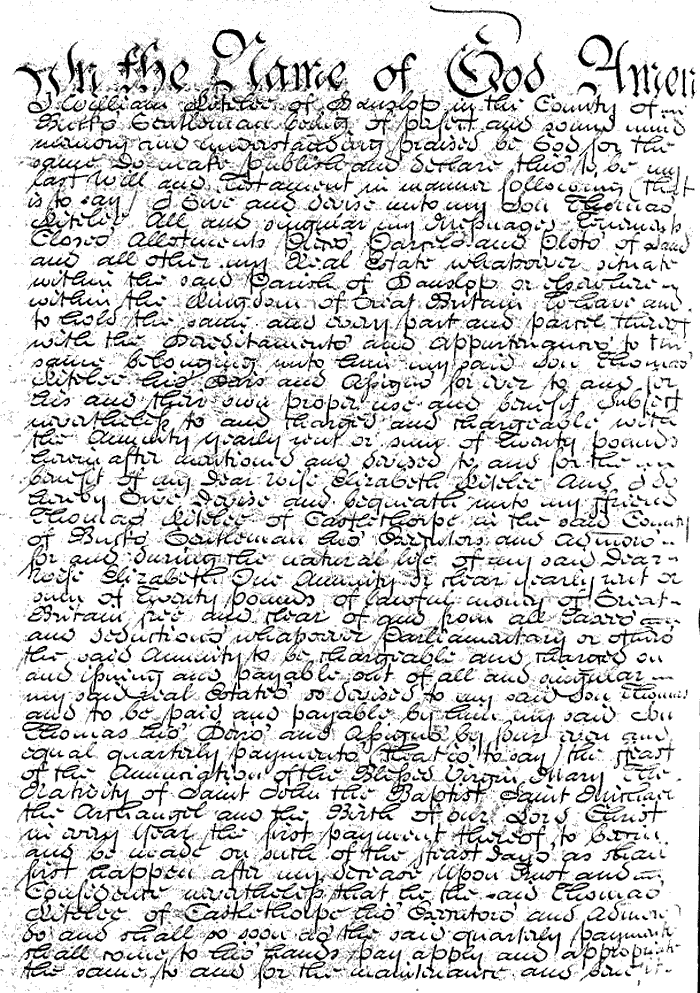 In the Name of God Amen
I William Kitelee of Hanslop in the County of
Bucks Gentleman being of perfect and sound mind
memory and understanding praised be God for the
same Do make publish and declare this to be my
last Will and Testament in manner following (that
is to say) I Give and devise unto my Son Thomas
Kitelee All and singular my Messuages Tenements
Closes Allotments Pieces Parcels and plots of Land
and all other my Real Estate whatsoever situate
within the said Parish of Hanslop or elsewhere
within the Kingdom of Great Britain To have and
to hold the same and every part and parcel thereof
with the Hereditaments and Appurtenances to the
same belonging unto him my said Son Thomas
Kitelee his Heirs and Assigns for ever to and for
his and their own proper use and benefit Subject
nevertheless to and charged and chargeable with
the Annuity yearly rent or sum of twenty pounds
herein after mentioned and devised to and for the
benefit of my dear wife Elizabeth Kitelee And I do
hereby Give Devise and bequeath unto my ffriend
Thomas Kitelee of Castlethorpe in the said County
of Bucks Gentleman his Executors and Admors
for and during the natural life of my said dear
wife Elizabeth One Annuity or clear yearly rent or
sum of twenty pounds of lawful money of Great
Britain free and clear of and from all taxes
and deductions whatsoever Parliamentary or others
the said Annuity to be chargeable and charged on
and issuing and payable out of all and singular
my said real Estates so devised to my said Son Thomas
and to be paid and payable by him my said Son
Thomas his Heirs and Assigns by four even and
equal quarterly payments (that is to say) the ffeast
of the Annunciation of the Blessed Virgin Mary The
Nativity of Saint John the Baptist Saint Michael
the Archangel and the Birth of our Lord Christ
in every Year the first payment thereof to begin
and be made on such of the ffeast days as shall
first happen after my decease Upon Trust and
Confidence nevertheless that he the said Thomas
Kitelee of Castlethorpe his Executors and Admors
do and shall so soon as the said quarterly payments
shall come to his hands pay apply and appropriate
the same to and for the maintenance and benefit